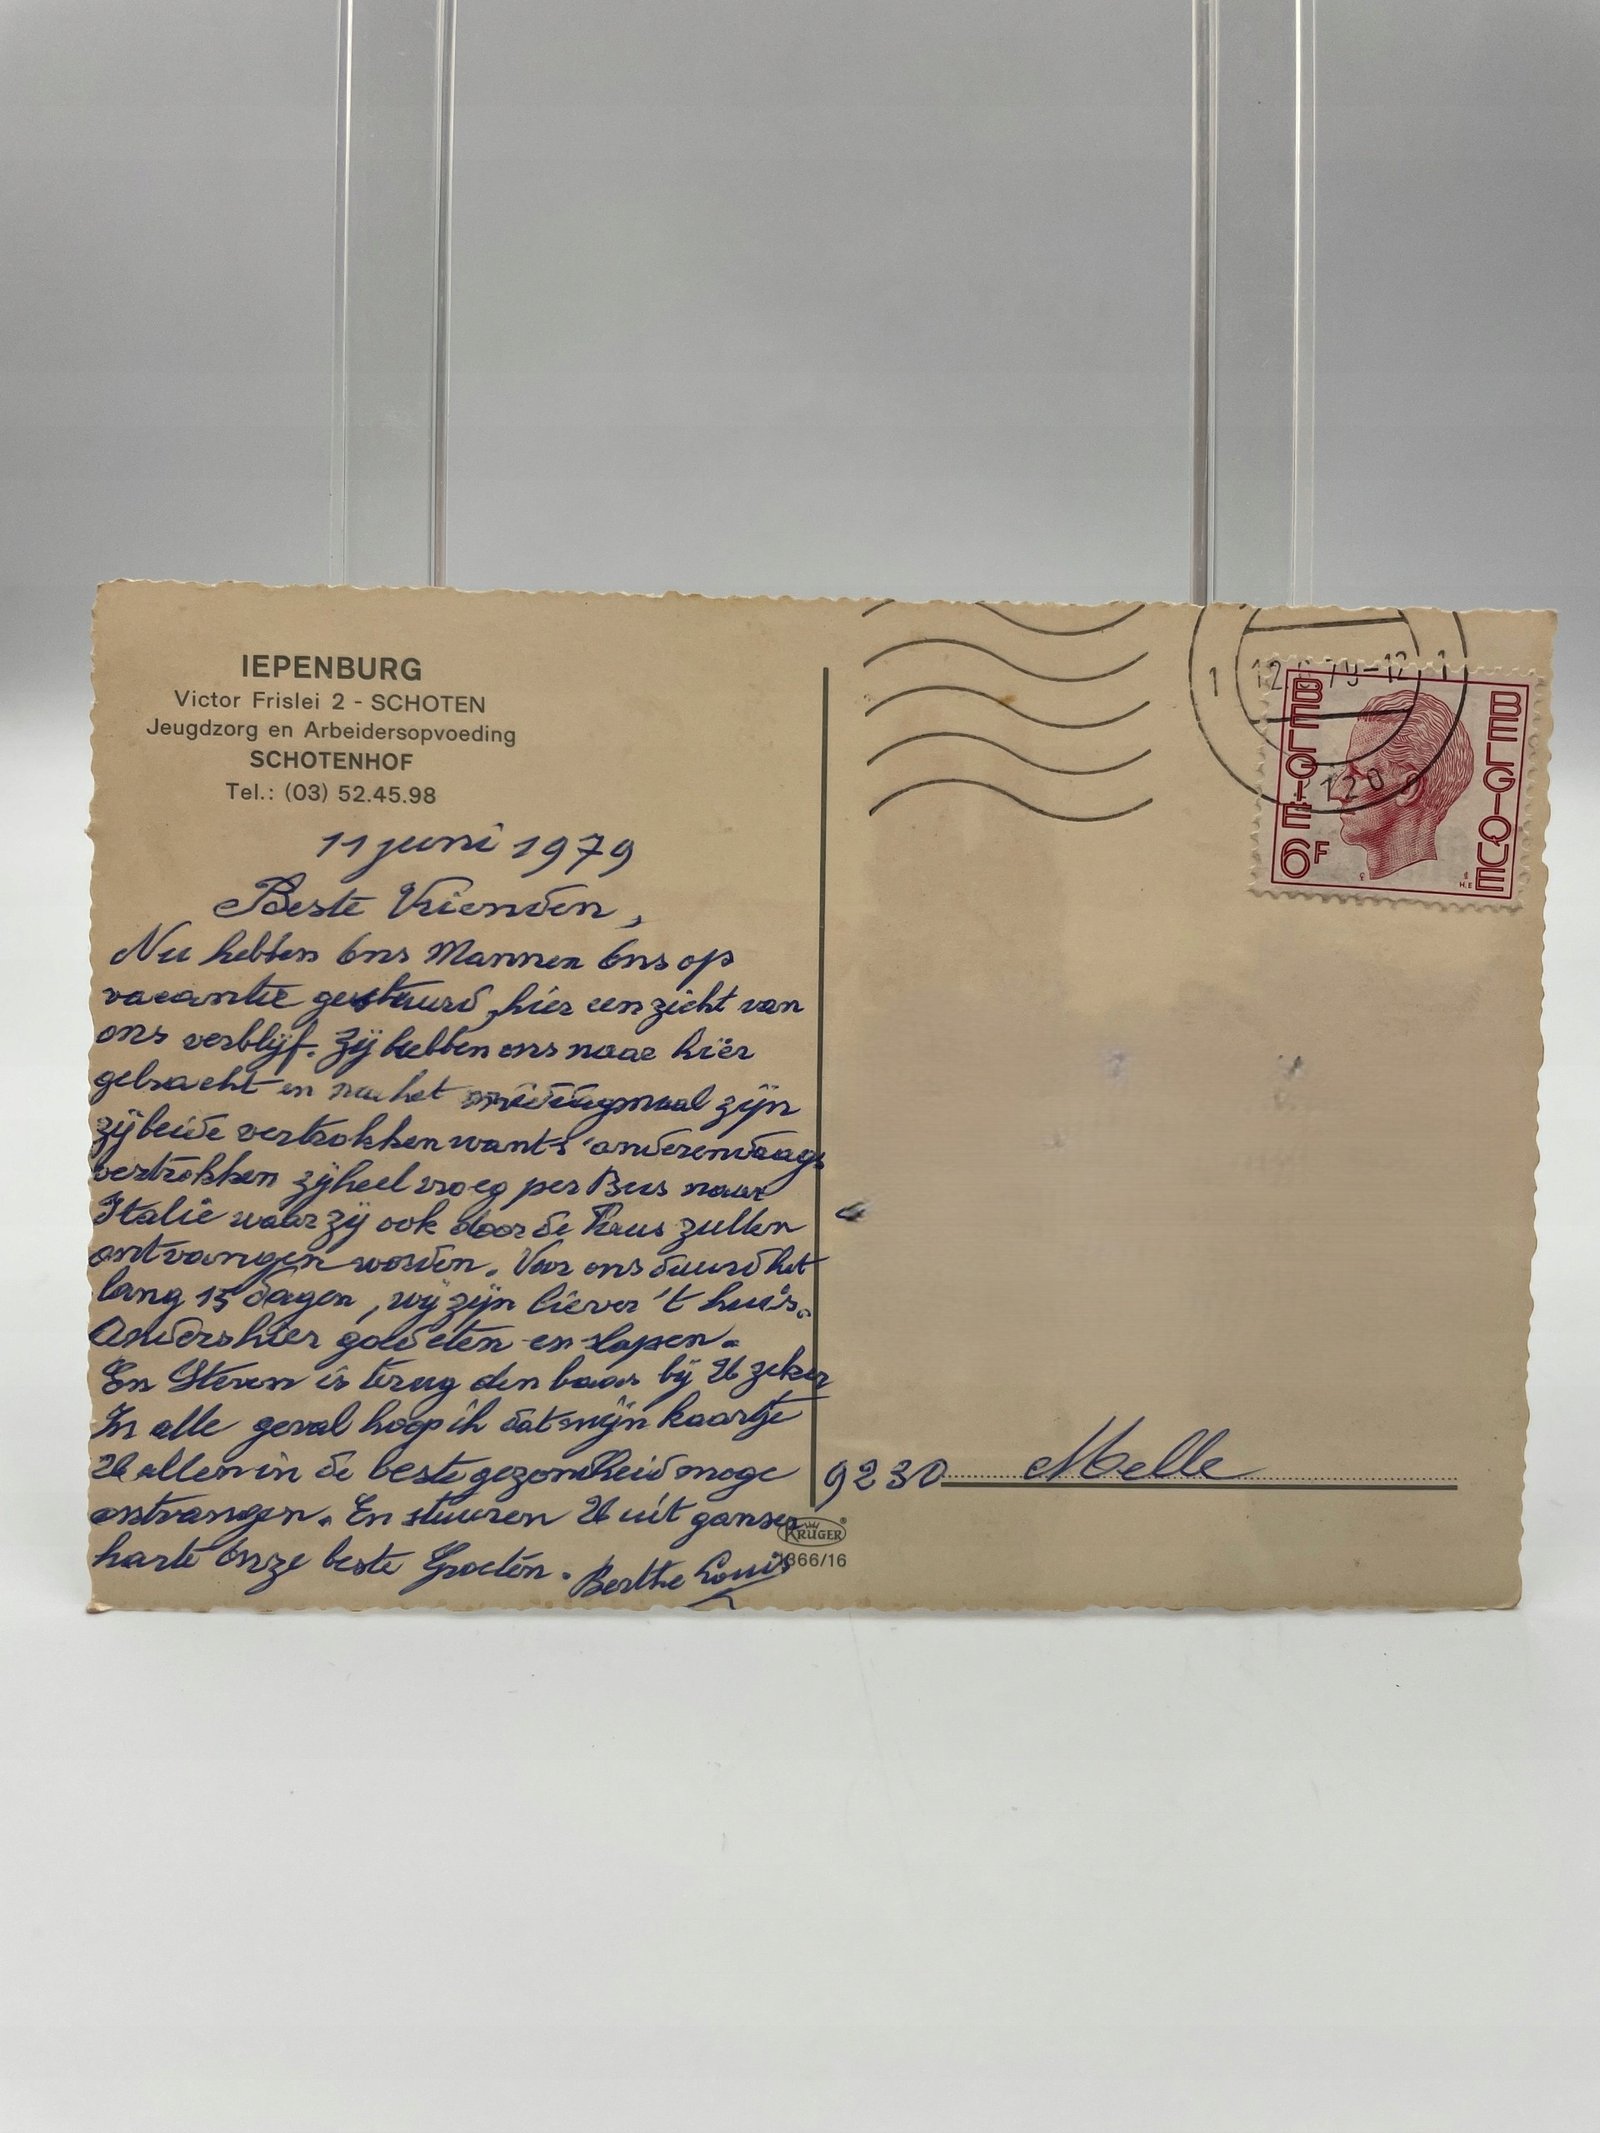 IEPENBURG
Victor Frislei 2 - SCHOTEN
Jeugdzorg en Arbeidersopvoeding
SCHOTENHOF
Tel.: (03) 52.45.98
11 juni 1979
Beste Vrienden,
Nu hebben ons Mannen ons op
vacantie gestuurd, hier een zicht van
ons verblijf. Zij hebben ons naar hier
gebracht en na het middagmaal zijn
zij beide vertrokken want 's anderendaags
vertrokken zij heel vroeg per Bus naar
Italie waar zij ook door de Paus zullen
ontvangen worden. Voor ons duurd het
lang 15 dagen, wij zijn liever 't huis.
Anders hier goed eten en slapen.
En Steven is terug den baas bij U zeker
In alle geval hoop ik dat mijn kaartje
U allen in de beste gezondheid moge
ontvangen. En sturen U uit ganser
harte onze beste Groeten. Berthe Louis
BELGIE
BELGIQUE
6F
1
1
1366/16
KRÜGER
9230 Melle